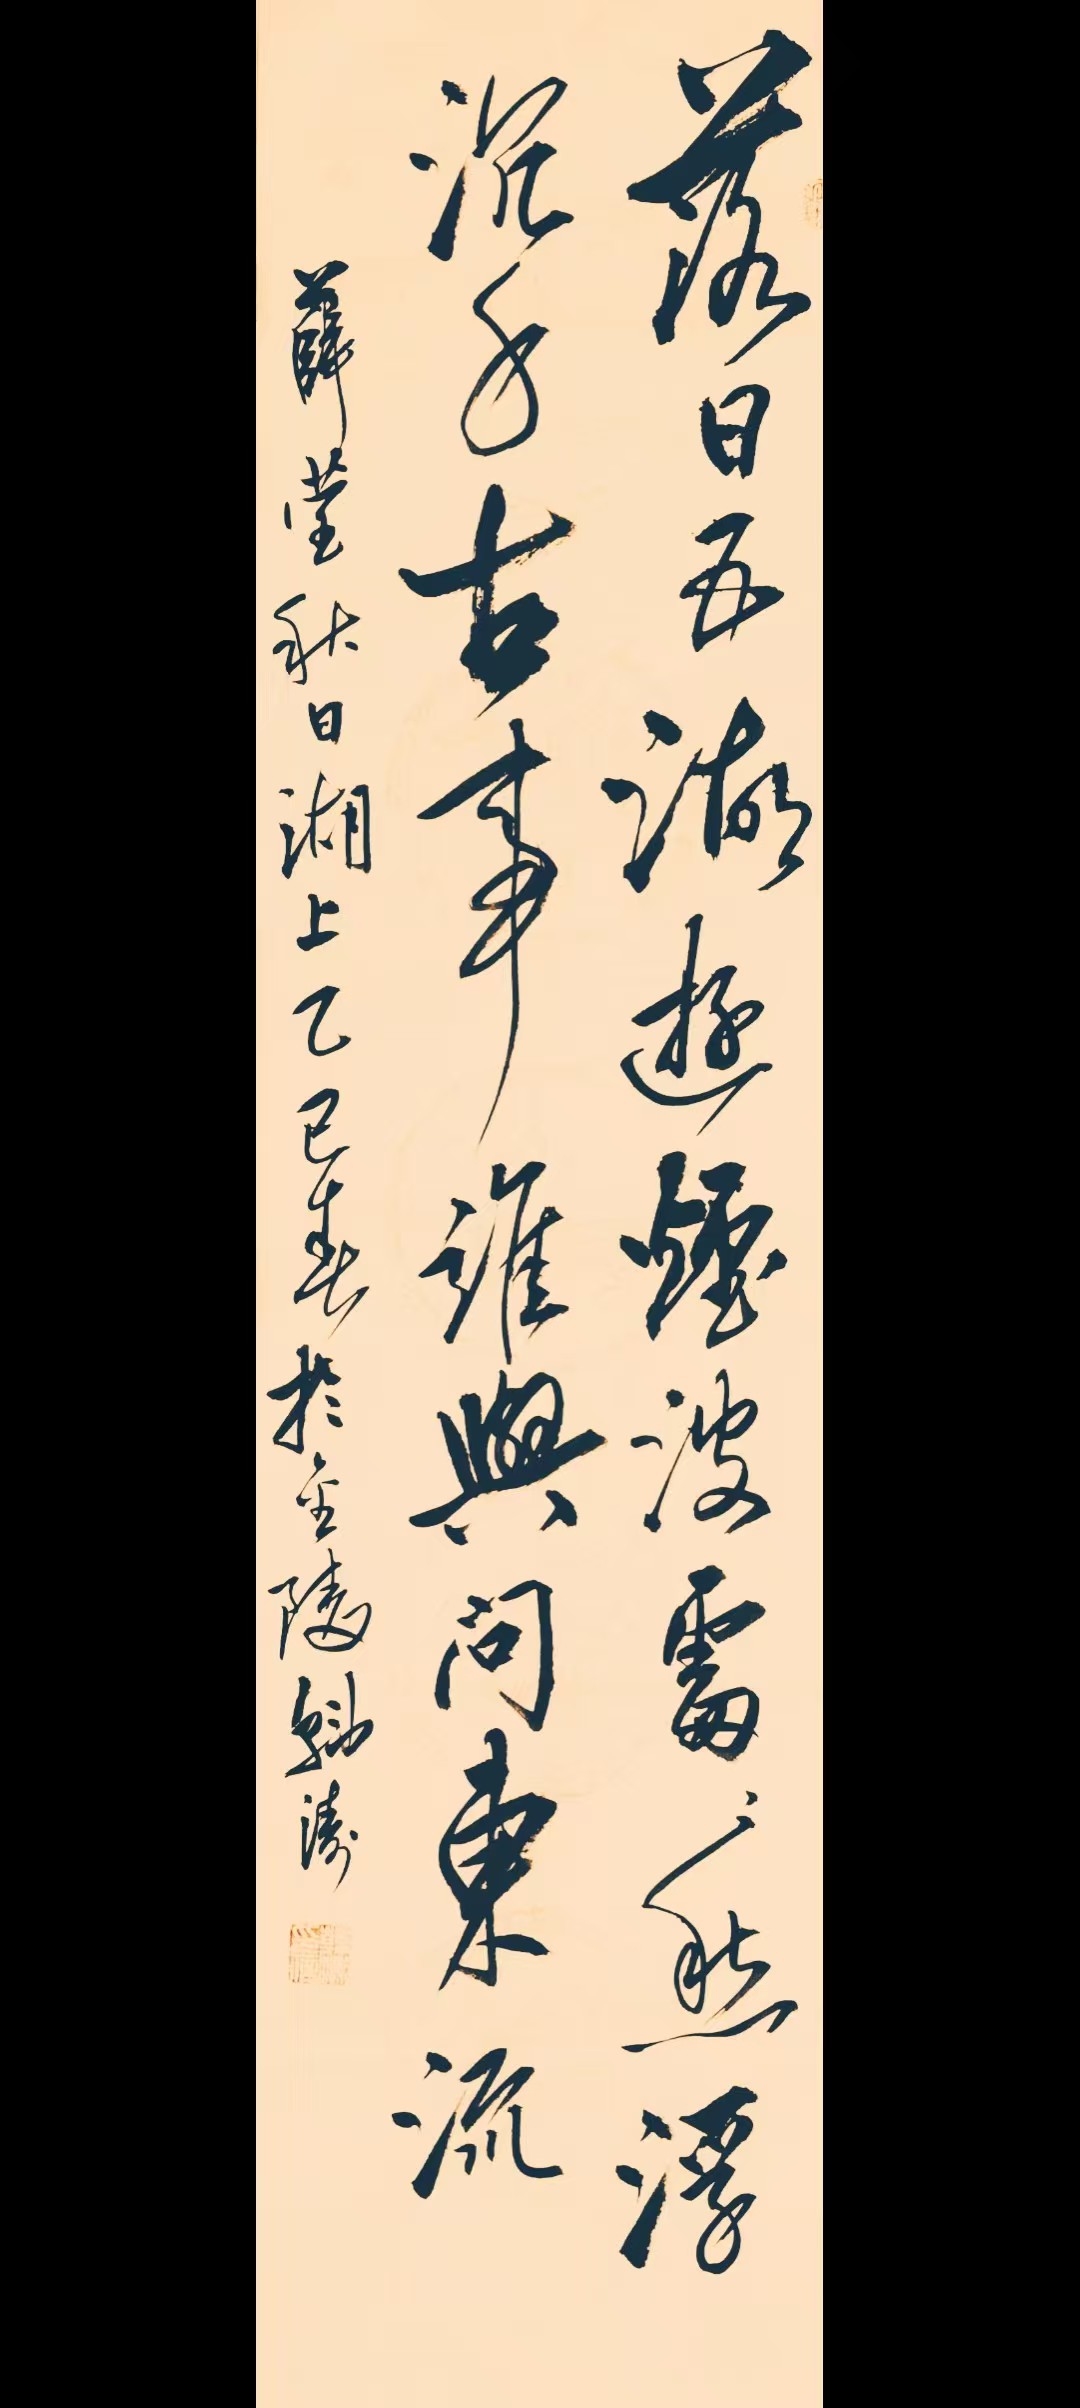 落日五湖遊煙波處〻愁浮
沉千古事誰與問東流
薛莹秋日湖上乙巳春於金陵濤